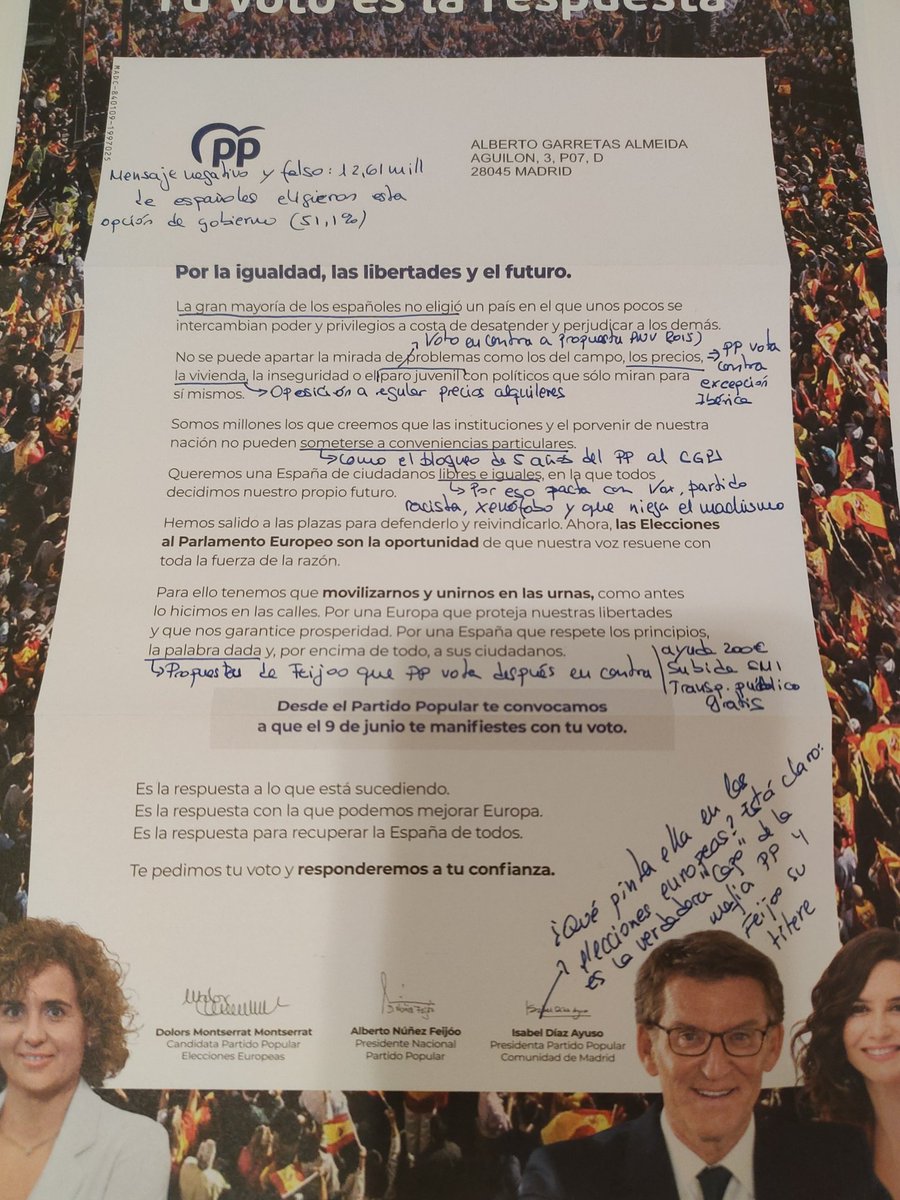 Tu voto es la respuesta
MADC-840109-1997025
PP
ALBERTO GARRETAS ALMEIDA
AGUILON, 3, P07, D
28045 MADRID
Mensaje negativo y falso: 12,61 mill
de españoles eligieron esta
opción de gobierno (51,1%)
Por la igualdad, las libertades y el futuro.
La gran mayoría de los españoles no eligió un país en el que unos pocos se
intercambian poder y privilegios a costa de desatender y perjudicar a los demás.
Voto en contra a propuesta
No se puede apartar la mirada de problemas como los del campo, los precios,
PP vota
contra
excepción
Ibérica
la vivienda, la inseguridad o el paro juvenil con políticos que sólo miran para
sí mismos.
Oposición a regular precios alquileres
Somos millones los que creemos que las instituciones y el porvenir de nuestra
nación no pueden someterse a conveniencias particulares.
Como el bloqueo de 5 años del PP al CGPJ
Queremos una España de ciudadanos libres e iguales, en la que todos
decidimos nuestro propio futuro.
Por eso pacta con Vox, partido
racista, xenófobo y que niega el machismo
Hemos salido a las plazas para defenderlo y reivindicarlo. Ahora, las Elecciones
al Parlamento Europeo son la oportunidad de que nuestra voz resuene con
toda la fuerza de la razón.
Para ello tenemos que movilizarnos y unirnos en las urnas, como antes
lo hicimos en las calles. Por una Europa que proteja nuestras libertades
y que nos garantice prosperidad. Por una España que respete los principios,
la palabra dada y, por encima de todo, a sus ciudadanos.
Propuestas de Feijoo que PP vota después en contra
ayuda 200€
Subida SMI
Transp. público
gratis
Desde el Partido Popular te convocamos
a que el 9 de junio te manifiestes con tu voto.
Es la respuesta a lo que está sucediendo.
Es la respuesta con la que podemos mejorar Europa.
Es la respuesta para recuperar la España de todos.
Te pedimos tu voto y responderemos a tu confianza.
¿Qué pinta ella en las
elecciones europeas? Está claro:
es la verdadera "Capo" de la
mafia PP y
Feijoo su
títere
Dolors Montserrat Montserrat
Candidata Partido Popular
Elecciones Europeas
Alberto Núñez Feijóo
Presidente Nacional
Partido Popular
Isabel Díaz Ayuso
Presidenta Partido Popular
Comunidad de Madrid